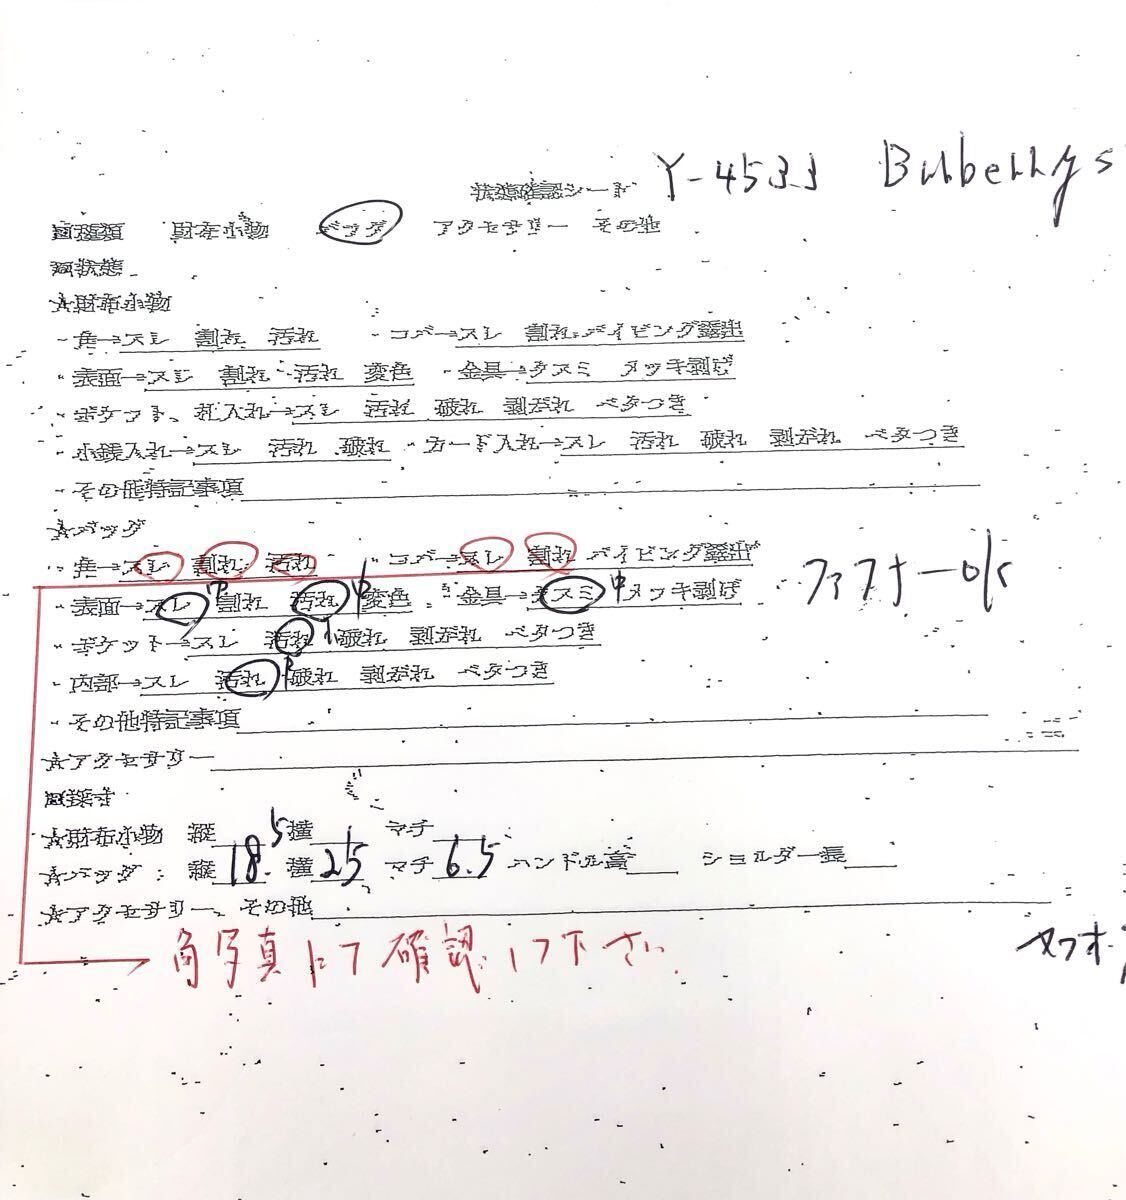 状態確認シート Y-4533 Burberrys
■種類 財布小物 バッグ アクセサリー その他
■状態
★財布小物
・角→スレ 割れ 汚れ ・コバ→スレ 割れ パイピング露出
・表面→スレ 割れ 汚れ 変色 ・金具→クスミ メッキ剥げ
・ポケット、札入れ→スレ 汚れ 破れ 剥がれ ベタつき
・小銭入れ→スレ 汚れ 破れ ・カード入れ→スレ 汚れ 破れ 剥がれ ベタつき
・その他特記事項
★バッグ
・角→スレ 割れ 汚れ ・コバ→スレ 割れ パイピング露出
ファスナーok
・表面→スレ 中 割れ 汚れ 中 変色 ・金具→クスミ 中 メッキ剥げ
・ポケット→スレ 汚れ 小 破れ 剥がれ ベタつき
・内部→スレ 汚れ 破れ 剥がれ ベタつき
・その他特記事項
★アクセサリー
■採寸
★財布小物 縦 横 マチ
★バッグ: 縦 18.5 横 25 マチ 6.5 ハンドル高 ショルダー長
★アクセサリー、その他
角写真にて確認して下さい